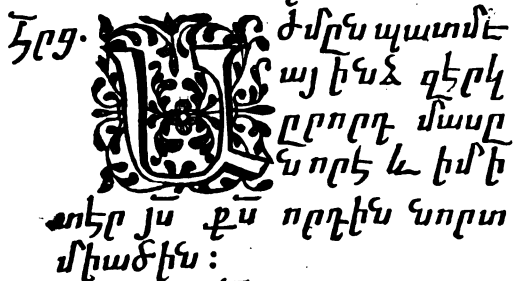 Հրց. Ա ժմըն պատմէ
այ ինձ զերկ
ըրորդ մասը
ն որէ և իմի
տէր յս քս որդին նորտ
միածին :